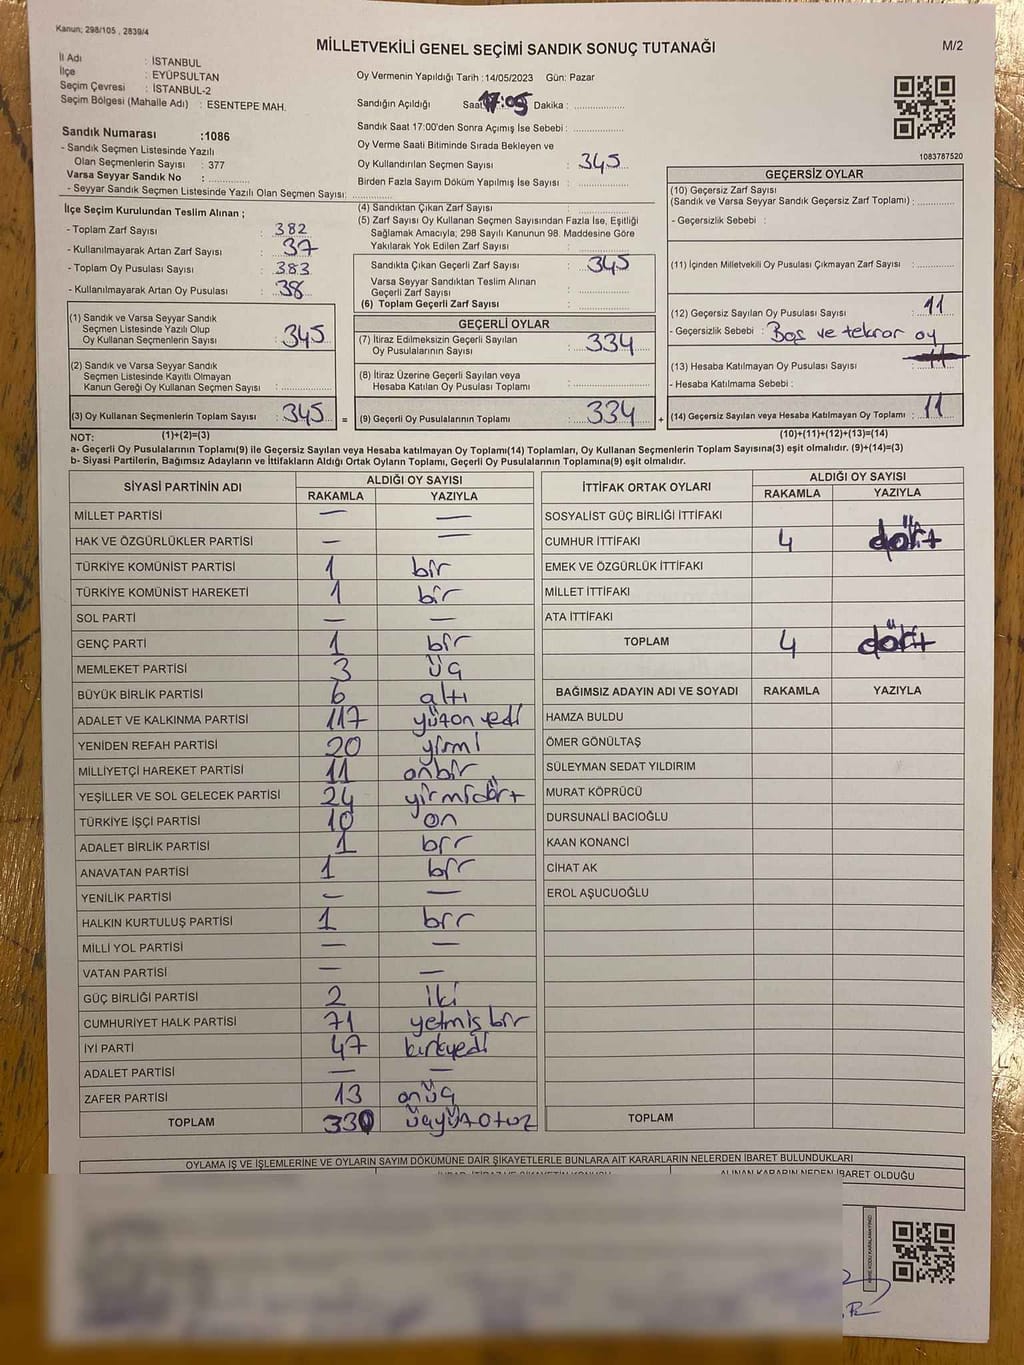 Kanun; 298/105 , 2839/4
MİLLETVEKİLİ GENEL SEÇİMİ SANDIK SONUÇ TUTANAĞI
M/2
İl Adı : İSTANBUL
İlçe : EYÜPSULTAN
Seçim Çevresi : İSTANBUL-2
Seçim Bölgesi (Mahalle Adı) : ESENTEPE MAH.
Sandık Numarası :1086
- Sandık Seçmen Listesinde Yazılı
Olan Seçmenlerin Sayısı : 377
Varsa Seyyar Sandık No :
- Seyyar Sandık Seçmen Listesinde Yazılı Olan Seçmen Sayısı:
Oy Vermenin Yapıldığı Tarih :14/05/2023 Gün: Pazar
Sandığın Açıldığı Saat 17:05 Dakika :
Sandık Saat 17:00'den Sonra Açımış İse Sebebi :
Oy Verme Saati Bitiminde Sırada Bekleyen ve
Oy Kullandırılan Seçmen Sayısı : 345
Birden Fazla Sayım Döküm Yapılmış İse Sayısı :
1083787520
İlçe Seçim Kurulundan Teslim Alınan ;
- Toplam Zarf Sayısı : 382
- Kullanılmayarak Artan Zarf Sayısı : 37
- Toplam Oy Pusulası Sayısı : 383
- Kullanılmayarak Artan Oy Pusulası : 38
(1) Sandık ve Varsa Seyyar Sandık
Seçmen Listesinde Yazılı Olup
Oy Kullanan Seçmenlerin Sayısı : 345
(2) Sandık ve Varsa Seyyar Sandık
Seçmen Listesinde Kayıtlı Olmayan
Kanun Gereği Oy Kullanan Seçmen Sayısı :
(3) Oy Kullanan Seçmenlerin Toplam Sayısı : 345 =
(4) Sandıktan Çıkan Zarf Sayısı :
(5) Zarf Sayısı Oy Kullanan Seçmen Sayısından Fazla İse, Eşitliği
Sağlamak Amacıyla; 298 Sayılı Kanunun 98. Maddesine Göre
Yakılarak Yok Edilen Zarf Sayısı :
Sandıkta Çıkan Geçerli Zarf Sayısı : 345
Varsa Seyyar Sandıktan Teslim Alınan
Geçerli Zarf Sayısı :
(6) Toplam Geçerli Zarf Sayısı :
GEÇERLİ OYLAR
(7) İtiraz Edilmeksizin Geçerli Sayılan
Oy Pusulalarının Sayısı : 334
(8) İtiraz Üzerine Geçerli Sayılan veya
Hesaba Katılan Oy Pusulası Toplamı :
(9) Geçerli Oy Pusulalarının Toplamı : 334 +
GEÇERSİZ OYLAR
(10) Geçersiz Zarf Sayısı
(Sandık ve Varsa Seyyar Sandık Geçersiz Zarf Toplamı) :
- Geçersizlik Sebebi :
(11) İçinden Milletvekili Oy Pusulası Çıkmayan Zarf Sayısı :
(12) Geçersiz Sayılan Oy Pusulası Sayısı : 11
- Geçersizlik Sebebi : Boş ve tekrar oy
(13) Hesaba Katılmayan Oy Pusulası Sayısı : 11
- Hesaba Katılmama Sebebi :
(14) Geçersiz Sayılan veya Hesaba Katılmayan Oy Toplamı : 11
NOT: (1)+(2)=(3) (10)+(11)+(12)+(13)=(14)
a- Geçerli Oy Pusulalarının Toplamı(9) ile Geçersiz Sayılan veya Hesaba katılmayan Oy Toplamı(14) Toplamları, Oy Kullanan Seçmenlerin Toplam Sayısına(3) eşit olmalıdır. (9)+(14)=(3)
b- Siyasi Partilerin, Bağımsız Adayların ve İttifakların Aldığı Ortak Oyların Toplamı, Geçerli Oy Pusulalarının Toplamına(9) eşit olmalıdır.
SİYASİ PARTİNİN ADI ALDIĞI OY SAYISI
RAKAMLA YAZIYLA
MİLLET PARTİSİ — —
HAK VE ÖZGÜRLÜKLER PARTİSİ — —
TÜRKİYE KOMÜNİST PARTİSİ 1 bir
TÜRKİYE KOMÜNİST HAREKETİ 1 bir
SOL PARTİ — —
GENÇ PARTİ 1 bir
MEMLEKET PARTİSİ 3 üç
BÜYÜK BİRLİK PARTİSİ 6 altı
ADALET VE KALKINMA PARTİSİ 117 yüzon yedi
YENİDEN REFAH PARTİSİ 20 yirmi
MİLLİYETÇİ HAREKET PARTİSİ 11 onbir
YEŞİLLER VE SOL GELECEK PARTİSİ 24 yirmidört
TÜRKİYE İŞÇİ PARTİSİ 10 on
ADALET BİRLİK PARTİSİ 1 bir
ANAVATAN PARTİSİ 1 bir
YENİLİK PARTİSİ — —
HALKIN KURTULUŞ PARTİSİ 1 bir
MİLLİ YOL PARTİSİ — —
VATAN PARTİSİ — —
GÜÇ BİRLİĞİ PARTİSİ 2 iki
CUMHURİYET HALK PARTİSİ 71 yetmiş bir
İYİ PARTİ 47 kırkyedi
ADALET PARTİSİ — —
ZAFER PARTİSİ 13 onüç
TOPLAM 330 üçyüzotuz
İTTİFAK ORTAK OYLARI ALDIĞI OY SAYISI
RAKAMLA YAZIYLA
SOSYALİST GÜÇ BİRLİĞİ İTTİFAKI
CUMHUR İTTİFAKI 4 dört
EMEK VE ÖZGÜRLÜK İTTİFAKI
MİLLET İTTİFAKI
ATA İTTİFAKI
TOPLAM 4 dört
BAĞIMSIZ ADAYIN ADI VE SOYADI RAKAMLA YAZIYLA
HAMZA BULDU
ÖMER GÖNÜLTAŞ
SÜLEYMAN SEDAT YILDIRIM
MURAT KÖPRÜCÜ
DURSUNALİ BACIOĞLU
KAAN KONANCİ
CİHAT AK
EROL AŞUCUOĞLU
TOPLAM
OYLAMA İŞ VE İŞLEMLERİNE VE OYLARIN SAYIM DÖKÜMÜNE DAİR ŞİKAYETLERLE BUNLARA AİT KARARLARIN NELERDEN İBARET BULUNDUKLARI
ALINAN KARARIN NEDEN İBARET OLDUĞU